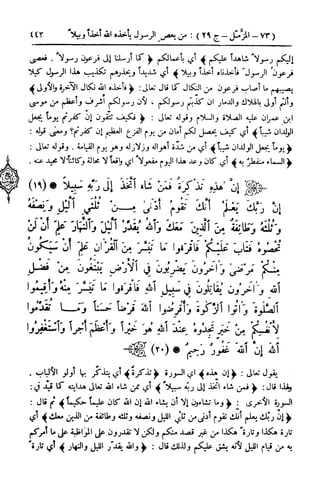 (٧٣ – المزَّمِّل – ج ٢٩) : من يعصِ الرسول يأخذه الله أخذاً وبيلاً    ٤٤٣
إليكم رسولاً شاهداً عليكم﴾ أي بأعمالكم ﴿كما أرسلنا إلى فرعون رسولاً. فعصى
فرعونُ الرسولَ فأخذناه أخذاً وبيلاً﴾ أي شديداً ويحذرهم تكذيب هذا الرسول كيلا
يصيبهم ما أصاب فرعون من النكال كما قال تعالى: ﴿فأخذه الله نكال الآخرة والأولى﴾
وأنتم أولى بالهلاك والدمار إن كذبتم رسولكم، لأن رسولكم أشرف وأعظم من موسى
ابن عمران عليه الصلاة والسلام وقوله تعالى : ﴿فكيف تتقون إن كفرتم يوماً يجعل
الولدان شيباً﴾ أي كيف يحصل لكم أمان من يوم الفزع العظيم إن كفرتم؟ ومعنى قوله :
﴿يوماً يجعل الولدان شيباً﴾ أي من شدّة أهواله وزلازله وهو يوم القيامة . وقوله تعالى :
﴿السماء منفطر به﴾ أي كان وعد هذا اليوم مفعولاً أي واقعاً لا محالة وكائناً لا محيد عنه .
إِنَّ هَٰذِهِ تَذْكِرَةٌ فَمَن شَاءَ اتَّخَذَ إِلَىٰ رَبِّهِ سَبِيلًا * (١٩)
إِنَّ رَبَّكَ يَعْلَمُ أَنَّكَ تَقُومُ أَدْنَىٰ مِن ثُلُثَيِ الَّيْلِ وَنِصْفَهُ
وَثُلُثَهُ وَطَائِفَةٌ مِنَ الَّذِينَ مَعَكَ وَاللَّهُ يُقَدِّرُ الَّيْلَ وَالنَّهَارَ عَلِمَ أَن لَّن
تُحْصُوهُ فَتَابَ عَلَيْكُمْ فَاقْرَءُوا مَا تَيَسَّرَ مِنَ الْقُرْآنِ عَلِمَ أَن سَيَكُونُ
مِنكُم مَّرْضَىٰ وَآخَرُونَ يَضْرِبُونَ فِي الْأَرْضِ يَبْتَغُونَ مِن فَضْلِ
اللَّهِ وَآخَرُونَ يُقَاتِلُونَ فِي سَبِيلِ اللَّهِ فَاقْرَءُوا مَا تَيَسَّرَ مِنْهُ وَأَقِيمُوا
الصَّلَوٰةَ وَءَاتُوا الزَّكَوٰةَ وَأَقْرِضُوا اللَّهَ قَرْضًا حَسَنًا وَمَا تُقَدِّمُوا
لِأَنفُسِكُم مِّنْ خَيْرٍ تَجِدُوهُ عِندَ اللَّهِ هُوَ خَيْرًا وَأَعْظَمَ أَجْرًا وَاسْتَغْفِرُوا
اللَّهَ إِنَّ اللَّهَ غَفُورٌ رَّحِيمٌ * (٢٠)
يقول تعالى : ﴿إن هذه﴾ أي السورة ﴿تذكرة﴾ أي يتذكّر بها أولو الألباب .
ولهذا قال: ﴿فمن شاء اتخذ إلى ربّه سبيلاً﴾ أي ممن شاء الله تعالى هدايته كما قيّد في :
السورة الأخرى : ﴿وما تشاءون إلا أن يشاء الله إن الله كان عليماً حكيماً﴾ ثم قال :
﴿إن ربّك يعلم أنّك تقوم أدنى من ثلثي الليل ونصفه وثلثه وطائفة من الذين معك﴾ أي
تارة هكذا وتارة هكذا من غير قصد منكم ولكن لا تقدرون على المواظبة على ما أمركم
به من قيام الليل لأنه يشق عليكم ولذلك قال : ﴿والله يقدّر الليل والنهار﴾ أي تارة